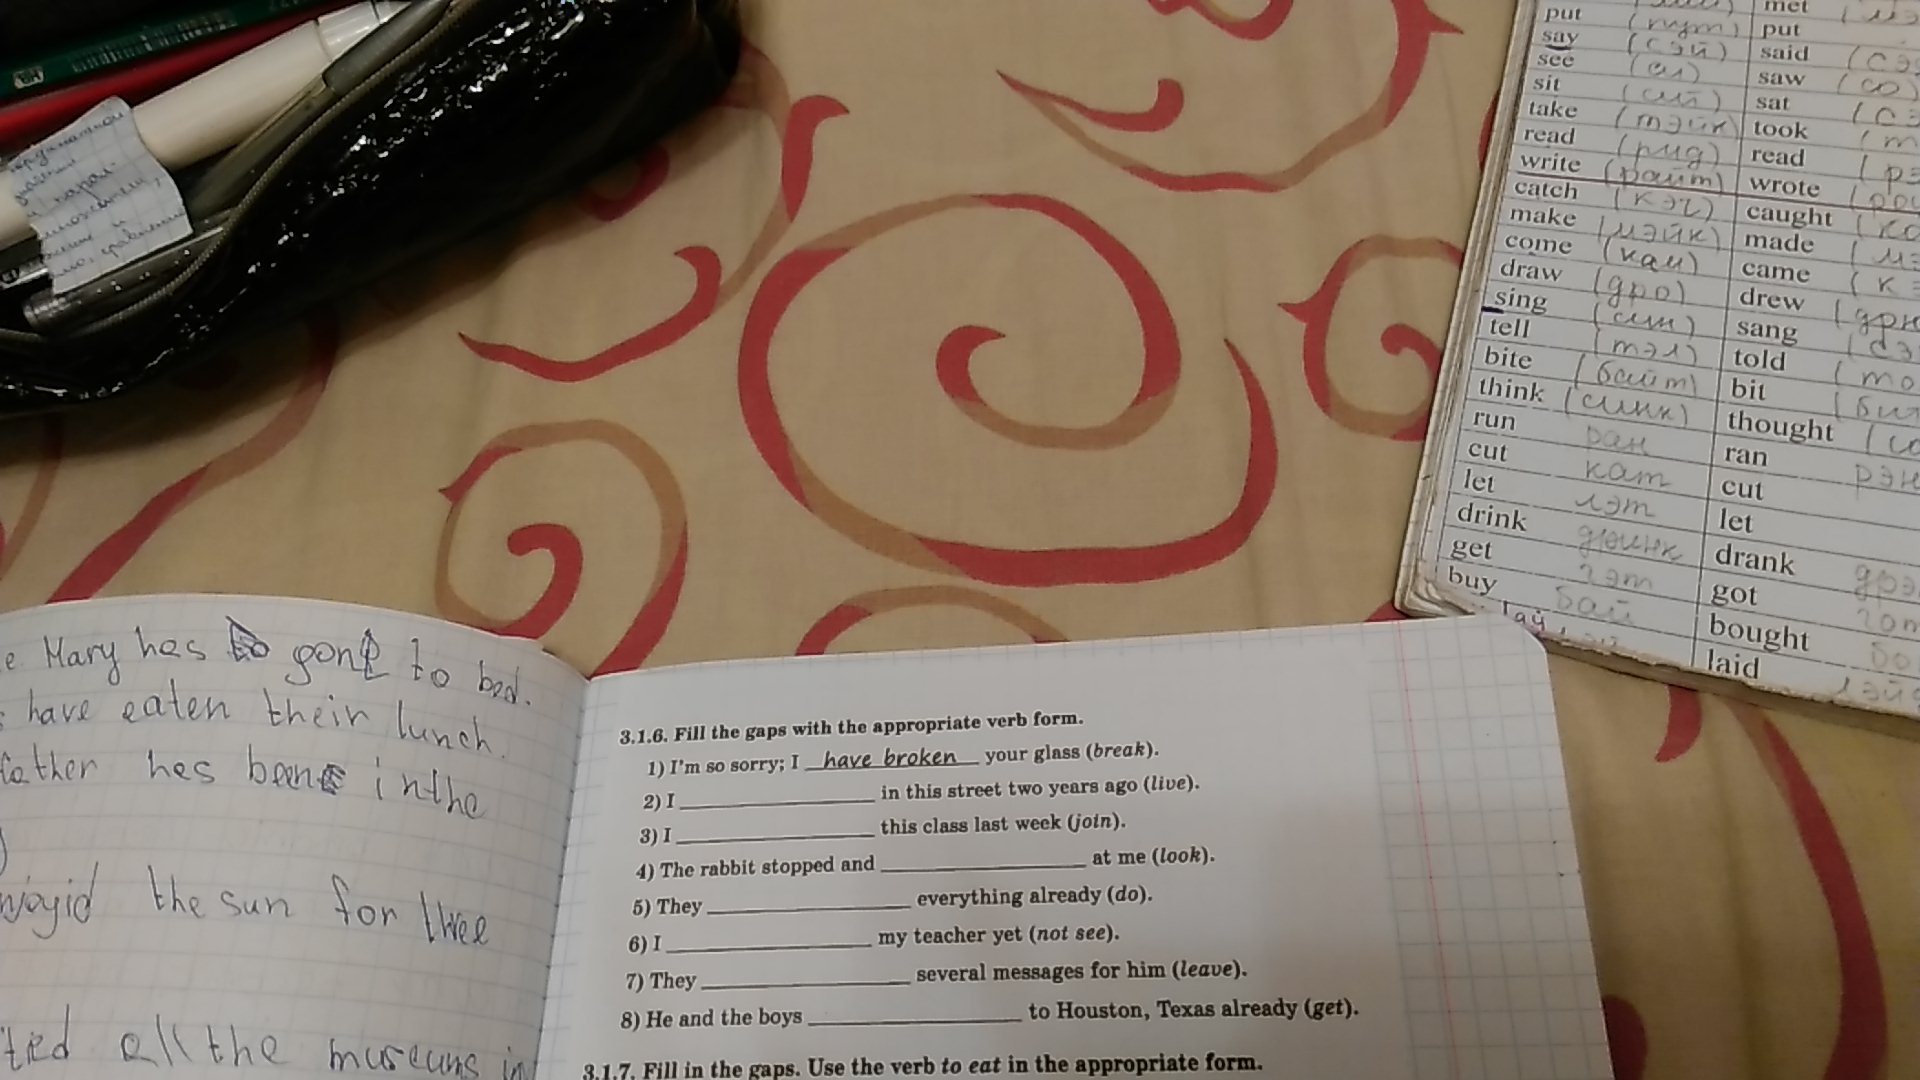 HB
e Mary has gone to bed.
have eaten their lunch.
father has been in the
the sun for three
all the museums in
3.1.6. Fill the gaps with the appropriate verb form.
1) I'm so sorry; I have broken your glass (break).
2) I ____________ in this street two years ago (live).
3) I ____________ this class last week (join).
4) The rabbit stopped and ____________ at me (look).
5) They ____________ everything already (do).
6) I ____________ my teacher yet (not see).
7) They ____________ several messages for him (leave).
8) He and the boys ____________ to Houston, Texas already (get).
3.1.7. Fill in the gaps. Use the verb to eat in the appropriate form.
met
put (пут) put
say (сэй) said
see (си) saw (со)
sit (сит) sat
take (тэйк) took
read (рид) read
write (райт) wrote
catch (кэч) caught
make (мэйк) made
come (кам) came
draw (дро) drew
sing (син) sang
tell (тэл) told
bite (байт) bit
think (синк) thought
run ран ran
cut кат cut
let лэт let
drink дринк drank
get гэт got
buy бай bought
laid